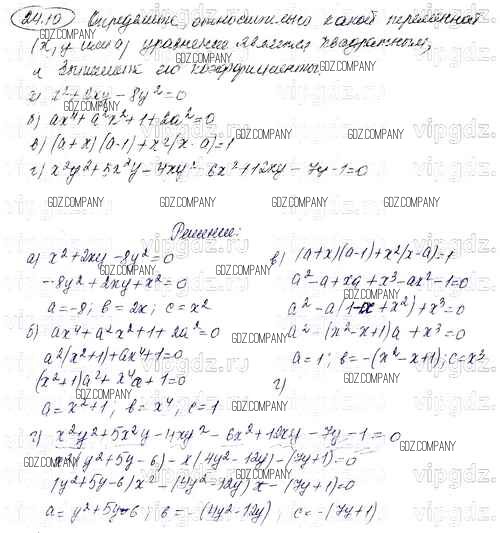 24.19 Определите, относительно какой переменной
(x, y или a) уравнение является квадратным,
и выпишите его коэффициенты.
а) x²+2xy-8y²=0
б) ax⁴+a²x²+1+2a²=0
в) (a+x)(a-1)+x²(x-a)=1
г) x²y²+5x²y-4xy²-6x²+12xy-7y-1=0
Решение:
а) x²+2xy-8y²=0
-8y²+2xy+x²=0
a=-8; b=2x; c=x²
б) ax⁴+a²x²+1+2a²=0
a²(x²+1)+ax⁴+1=0
(x²+1)a²+x⁴a+1=0
a=x²+1; b=x⁴; c=1
в) (a+x)(a-1)+x²(x-a)=1
a²-a+xa+x³-ax²-1=0
a²-a(1-x+x²)+x³=0
a²-(x²-x+1)a+x³=0
a=1; b=-(x²-x+1); c=x³
г)
г) x²y²+5x²y-4xy²-6x²+12xy-7y-1=0
x²(y²+5y-6)-x(4y²-12y)-(7y+1)=0
(y²+5y-6)x²-(4y²-12y)x-(7y+1)=0
a=y²+5y-6; b=-(4y²-12y); c=-(7y+1)
GDZ.COMPANY
vipgdz.ru